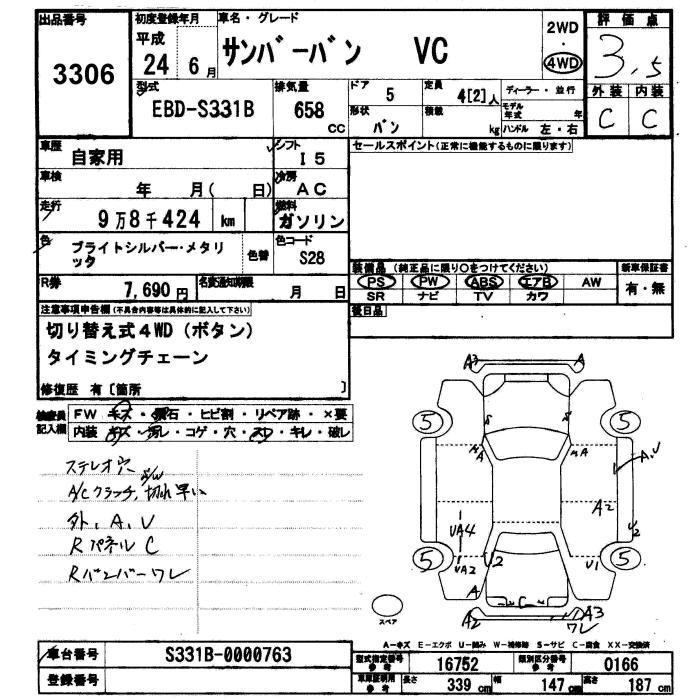 出品番号
3306
初度登録年月
平成
24 6 月
車名・グレード
サンバーバン VC
2WD
・
4WD
評価点
3.5
外装 内装
C C
型式
EBD-S331B
排気量
658
CC
ドア
5
定員
4[2]人
ディーラー・並行
形状
バン
積載
kg
モデル
年式 年
ハンドル 左・右
車歴
自家用
シフト
I5
車検
年 月( 日)
冷房
AC
走行
9万8千424 km
燃料
ガソリン
色
ブライトシルバー・メタリ
ッタ
色替
色コード
S28
R券
7,690 円
名変通知期限
月 日
セールスポイント(正常に機能するものに限ります)
装備品 (純正品に限り○をつけてください)
新車保証書
PS PW ABS エアB AW
SR ナビ TV カワ
有・無
後日品
注意事項申告欄(不具合内容等は具体的に記入して下さい)
切り替え式4WD(ボタン)
タイミングチェーン
修復歴 有〔箇所 〕
検査員
記入欄
FW キズ・飛石・ヒビ割・リペア跡・×要
内装 キズ・汚レ・コゲ・穴・スレ・キレ・破レ
ステレオ穴
S/W
A/Cクラッチ,切れ早い
外,A,U
Rパネル C
Rバンパーワレ
A3 A
5 5
A A
A,U
A2
UA4
U2
5 5
UA2 U2 U1
A C
A2 A3
ワレ
スペア
A―キズ E―エクボ U―凹み W―補修跡 S―サビ C―腐食 XX―交換済
車台番号
S331B-0000763
登録番号
型式指定番号
参考
16752
類別区分番号
参考
0166
車庫証明用
参考
長さ
339 cm
幅
147 cm
高さ
187 cm